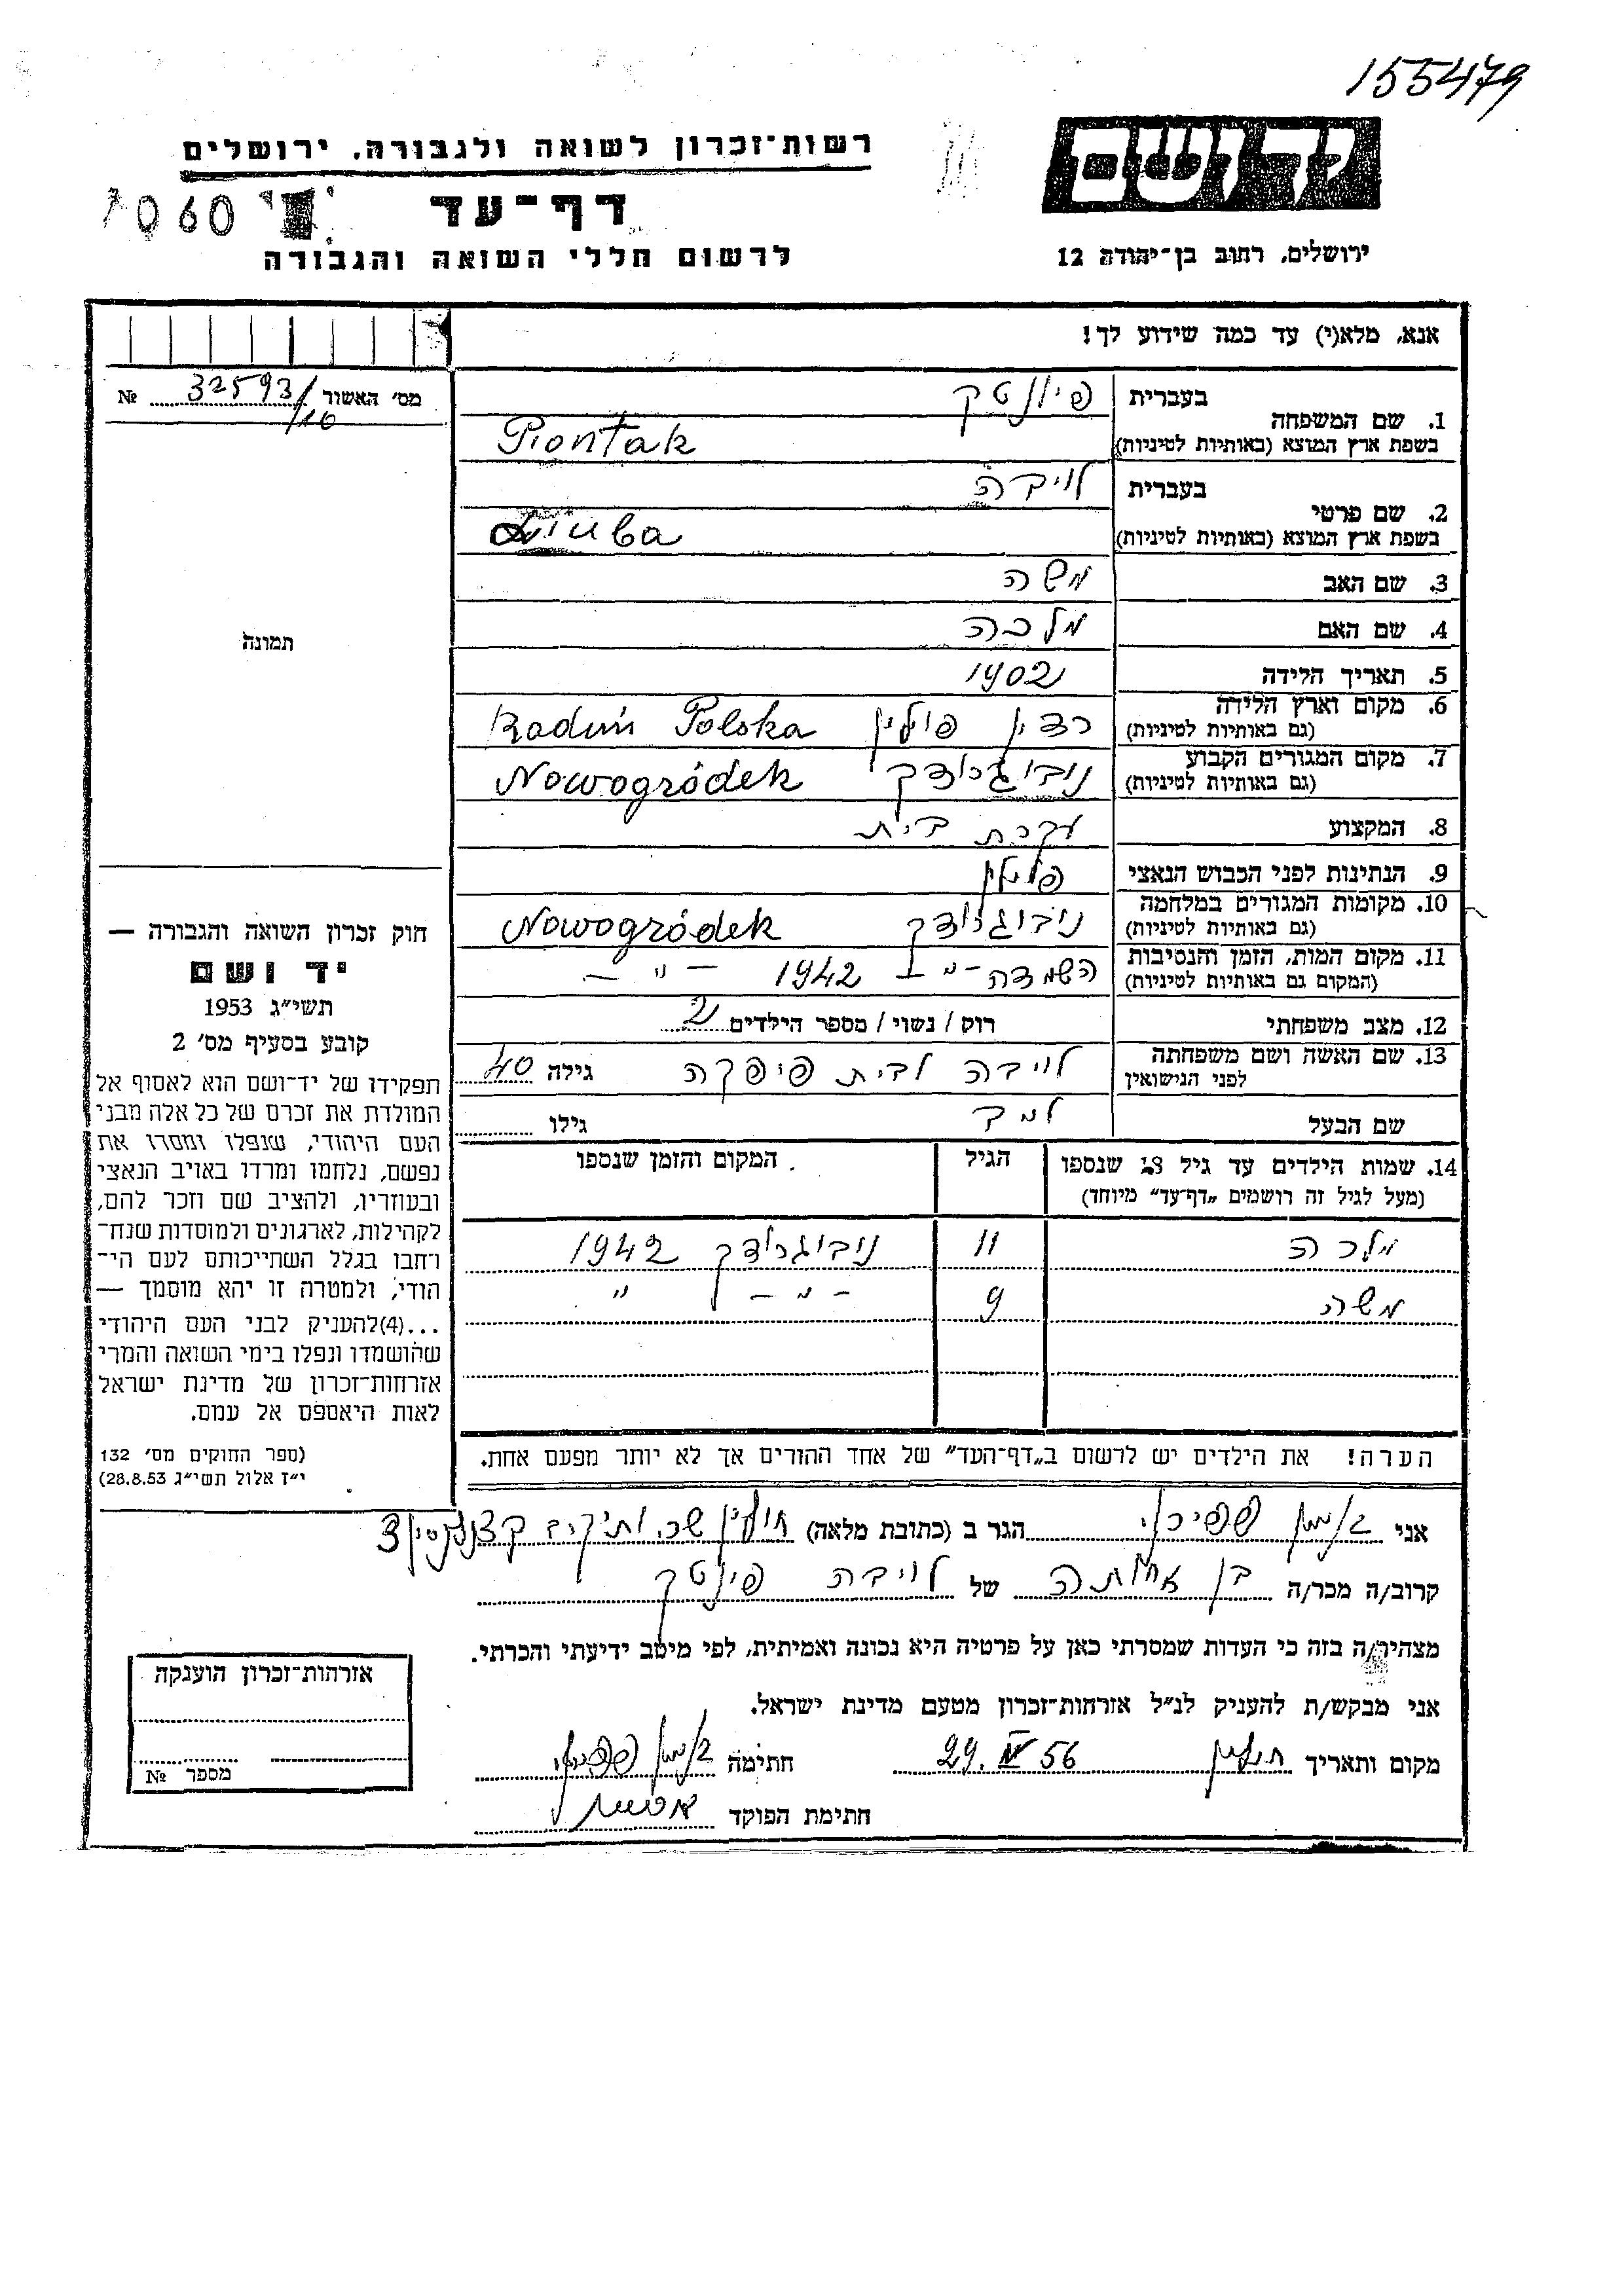 155479
יד ושם
רשות־זכרון לשואה ולגבורה, ירושלים
דף־עד
060
לרשום חללי השואה והגבורה
ירושלים, רחוב בן־יהודה 12
אנא, מלא(י) עד כמה שידוע לך!
מס׳ האשור 32593/16 №
1. שם המשפחה
בעברית פיונטק
בשפת ארץ המוצא (באותיות לטיניות) Piontak
2. שם פרטי
בעברית לויבה
בשפת ארץ המוצא (באותיות לטיניות) Liuba
3. שם האב משה
4. שם האם מלכה
5. תאריך הלידה 1902
6. מקום וארץ הלידה
(גם באותיות לטיניות) רדין פולין Raduń Polska
7. מקום המגורים הקבוע
(גם באותיות לטיניות) נובוגרודק Nowogródek
8. המקצוע עקרת בית
9. הנתינות לפני הכבוש הנאצי פולין
10. מקומות המגורים במלחמה
(גם באותיות לטיניות) נובוגרודק Nowogródek
11. מקום המות, הזמן והנסיבות
(המקום גם באותיות לטיניות) השמדה 1942 — " —
12. מצב משפחתי רוק / נשוי / מספר הילדים 2
13. שם האשה ושם משפחתה
לפני הנישואין לויבה לבית פופקה גילה 40
שם הבעל למך גילו
14. שמות הילדים עד גיל 18 שנספו הגיל המקום והזמן שנספו
(מעל לגיל זה רושמים „דף־עד״ מיוחד)
מלכה 11 נובוגרודק 1942
משה 9 — " — "
הערה! את הילדים יש לרשום ב„דף־העד״ של אחד ההורים אך לא יותר מפעם אחת.
תמונה
חוק זכרון השואה והגבורה —
יד ושם
תשי״ג 1953
קובע בסעיף מס׳ 2
תפקידו של יד־ושם הוא לאסוף אל
המולדת את זכרם של כל אלה מבני
העם היהודי, שנפלו ומסרו את
נפשם, נלחמו ומרדו באויב הנאצי
ובעוזריו, ולהציב שם וזכר להם,
לקהילות, לארגונים ולמוסדות שנח־
רחבו בגלל השתייכותם לעם הי־
הודי, ולמטרה זו יהא מוסמך —
...(4) להעניק לבני העם היהודי
שהושמדו ונפלו בימי השואה והמרי
אזרחות־זכרון של מדינת ישראל
לאות היאספם אל עמם.
(ספר החוקים מס׳ 132
י״ז אלול תשי״ג 28.8.53)
אני הגר ב (כתובת מלאה) חולון שכ. ותיקים
קרוב/ה מכר/ה בן אחותה של לויבה פיונטק
מצהיר/ה בזה כי העדות שמסרתי כאן על פרטיה היא נכונה ואמיתית, לפי מיטב ידיעתי והכרתי.
אני מבקש/ת להעניק לנ״ל אזרחות־זכרון מטעם מדינת ישראל.
מקום ותאריך חולון 56 חתימה
חתימת הפוקד
אזרחות־זכרון הוענקה
מספר №